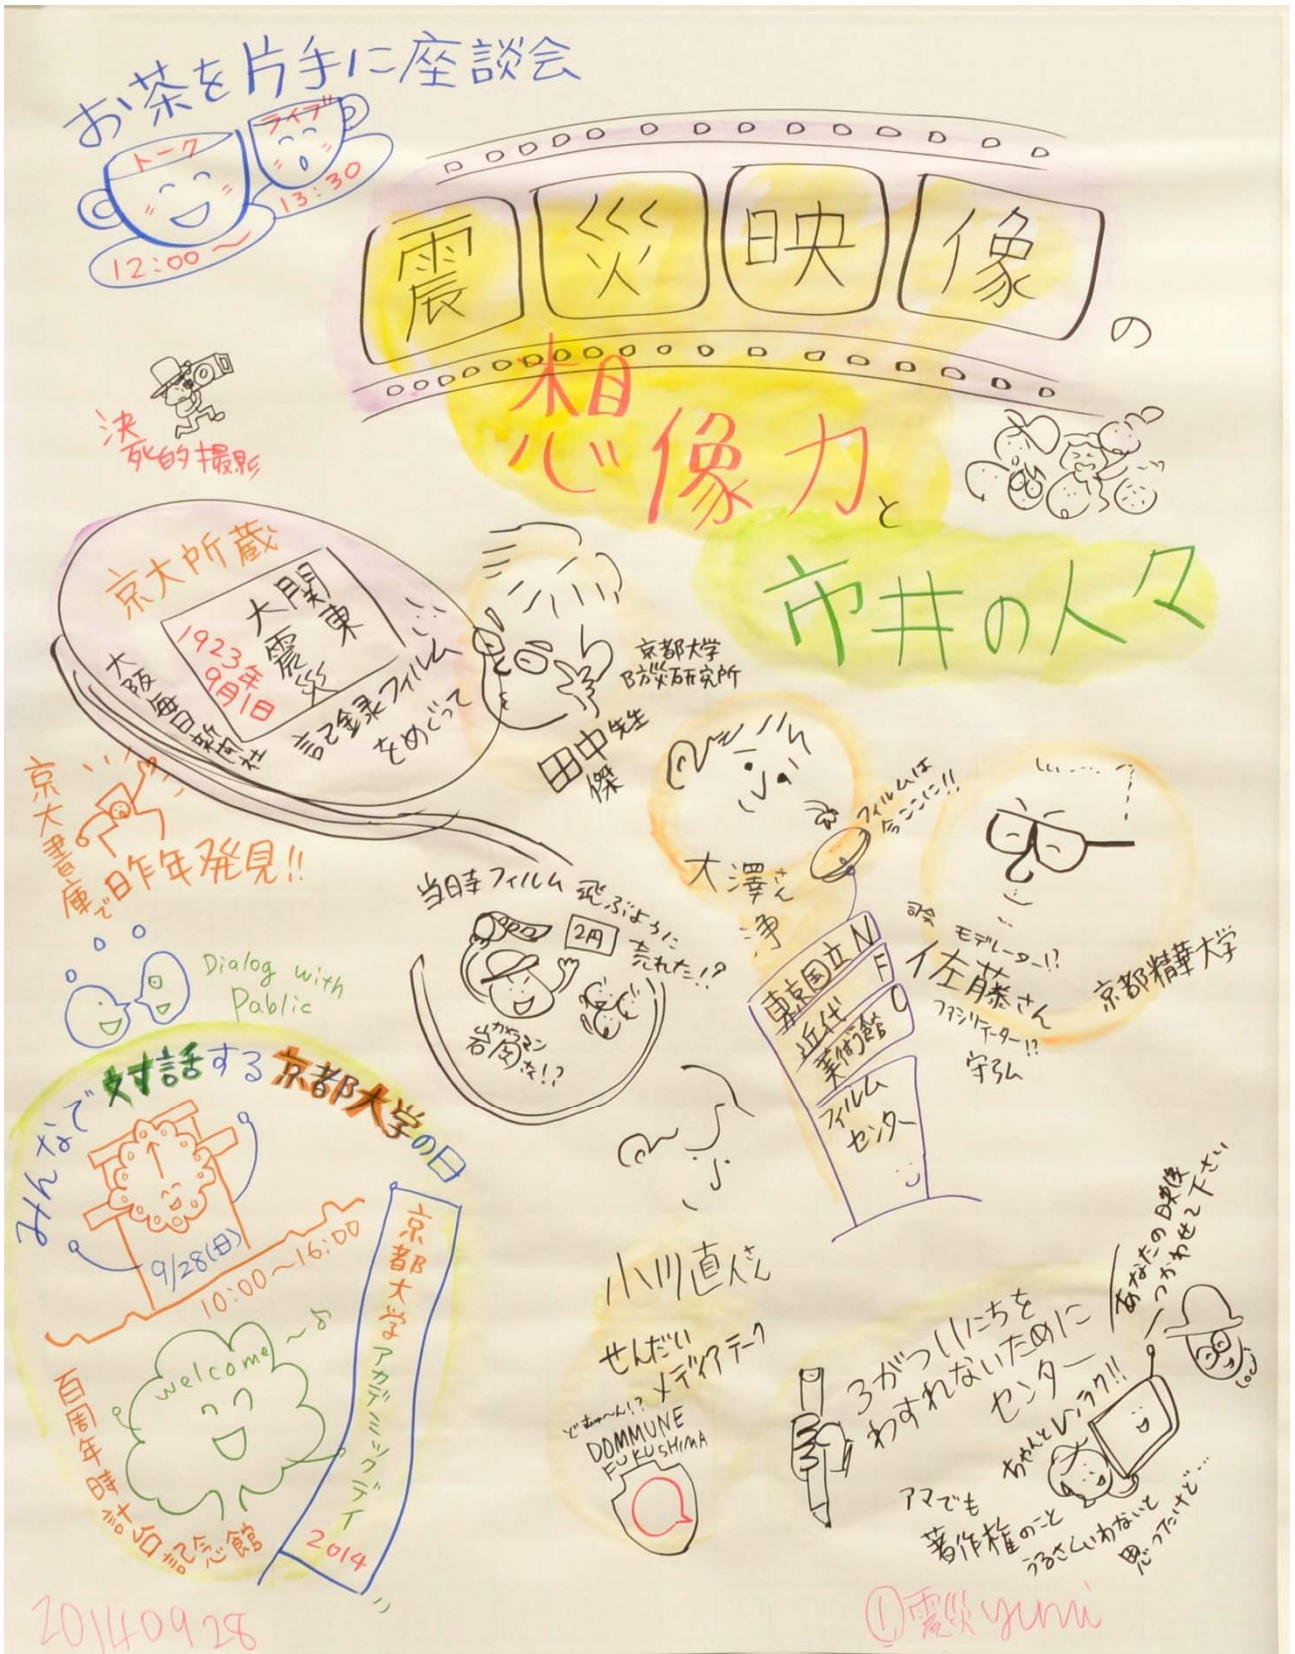 お茶を片手に座談会
トーク
12:00～
ライブ
13:30
震災映像の
想像力と
市井の人々
決死的撮影
京大所蔵
関東
大震災
1923年
9月1日
大阪毎日新聞社
記録フィルム
をめぐって
京都大学
防災研究所
田中先生
傑
京大書庫で昨年発見!!
当時フィルム飛ぶように
売れた!?
2円
カメラマン
岩岡さん!?
大澤さん
浄
フィルムは
今ここに!!
東京国立
近代
美術館
フィルム
センター
NFC
司会
モデレーター!?
佐藤さん
ファシリテーター!?
守弘
京都精華大学
Dialog with
Pablic
みんなで対話する京都大学の日
9/28(日)
10:00～16:00
welcome～♪
百周年時計台記念館
京都大学アカデミックデイ
2014
小川直人さん
せんだい
メディアテーク
どみゅ～ん!?
DOMMUNE
FUKUSHIMA
3がつ11にちを
わすれないために
センター
あなたの映像
つかわせて下さい
ちゃんとレンラク!!
アマでも
著作権のこと
うるさくいわないと
思ってたけど…
20140928
①震災yumi